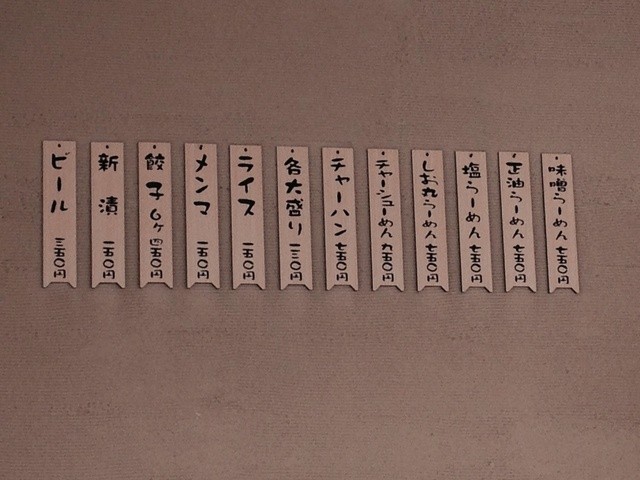 味噌らーめん 七五〇円
正油らーめん 七五〇円
塩らーめん 七五〇円
しお丸らーめん 七五〇円
チャーシューめん 九五〇円
チャーハン 七五〇円
各大盛り 一三〇円
ライス 一五〇円
メンマ 一五〇円
餃子6ヶ 四五〇円
新漬 一五〇円
ビール 三五〇円